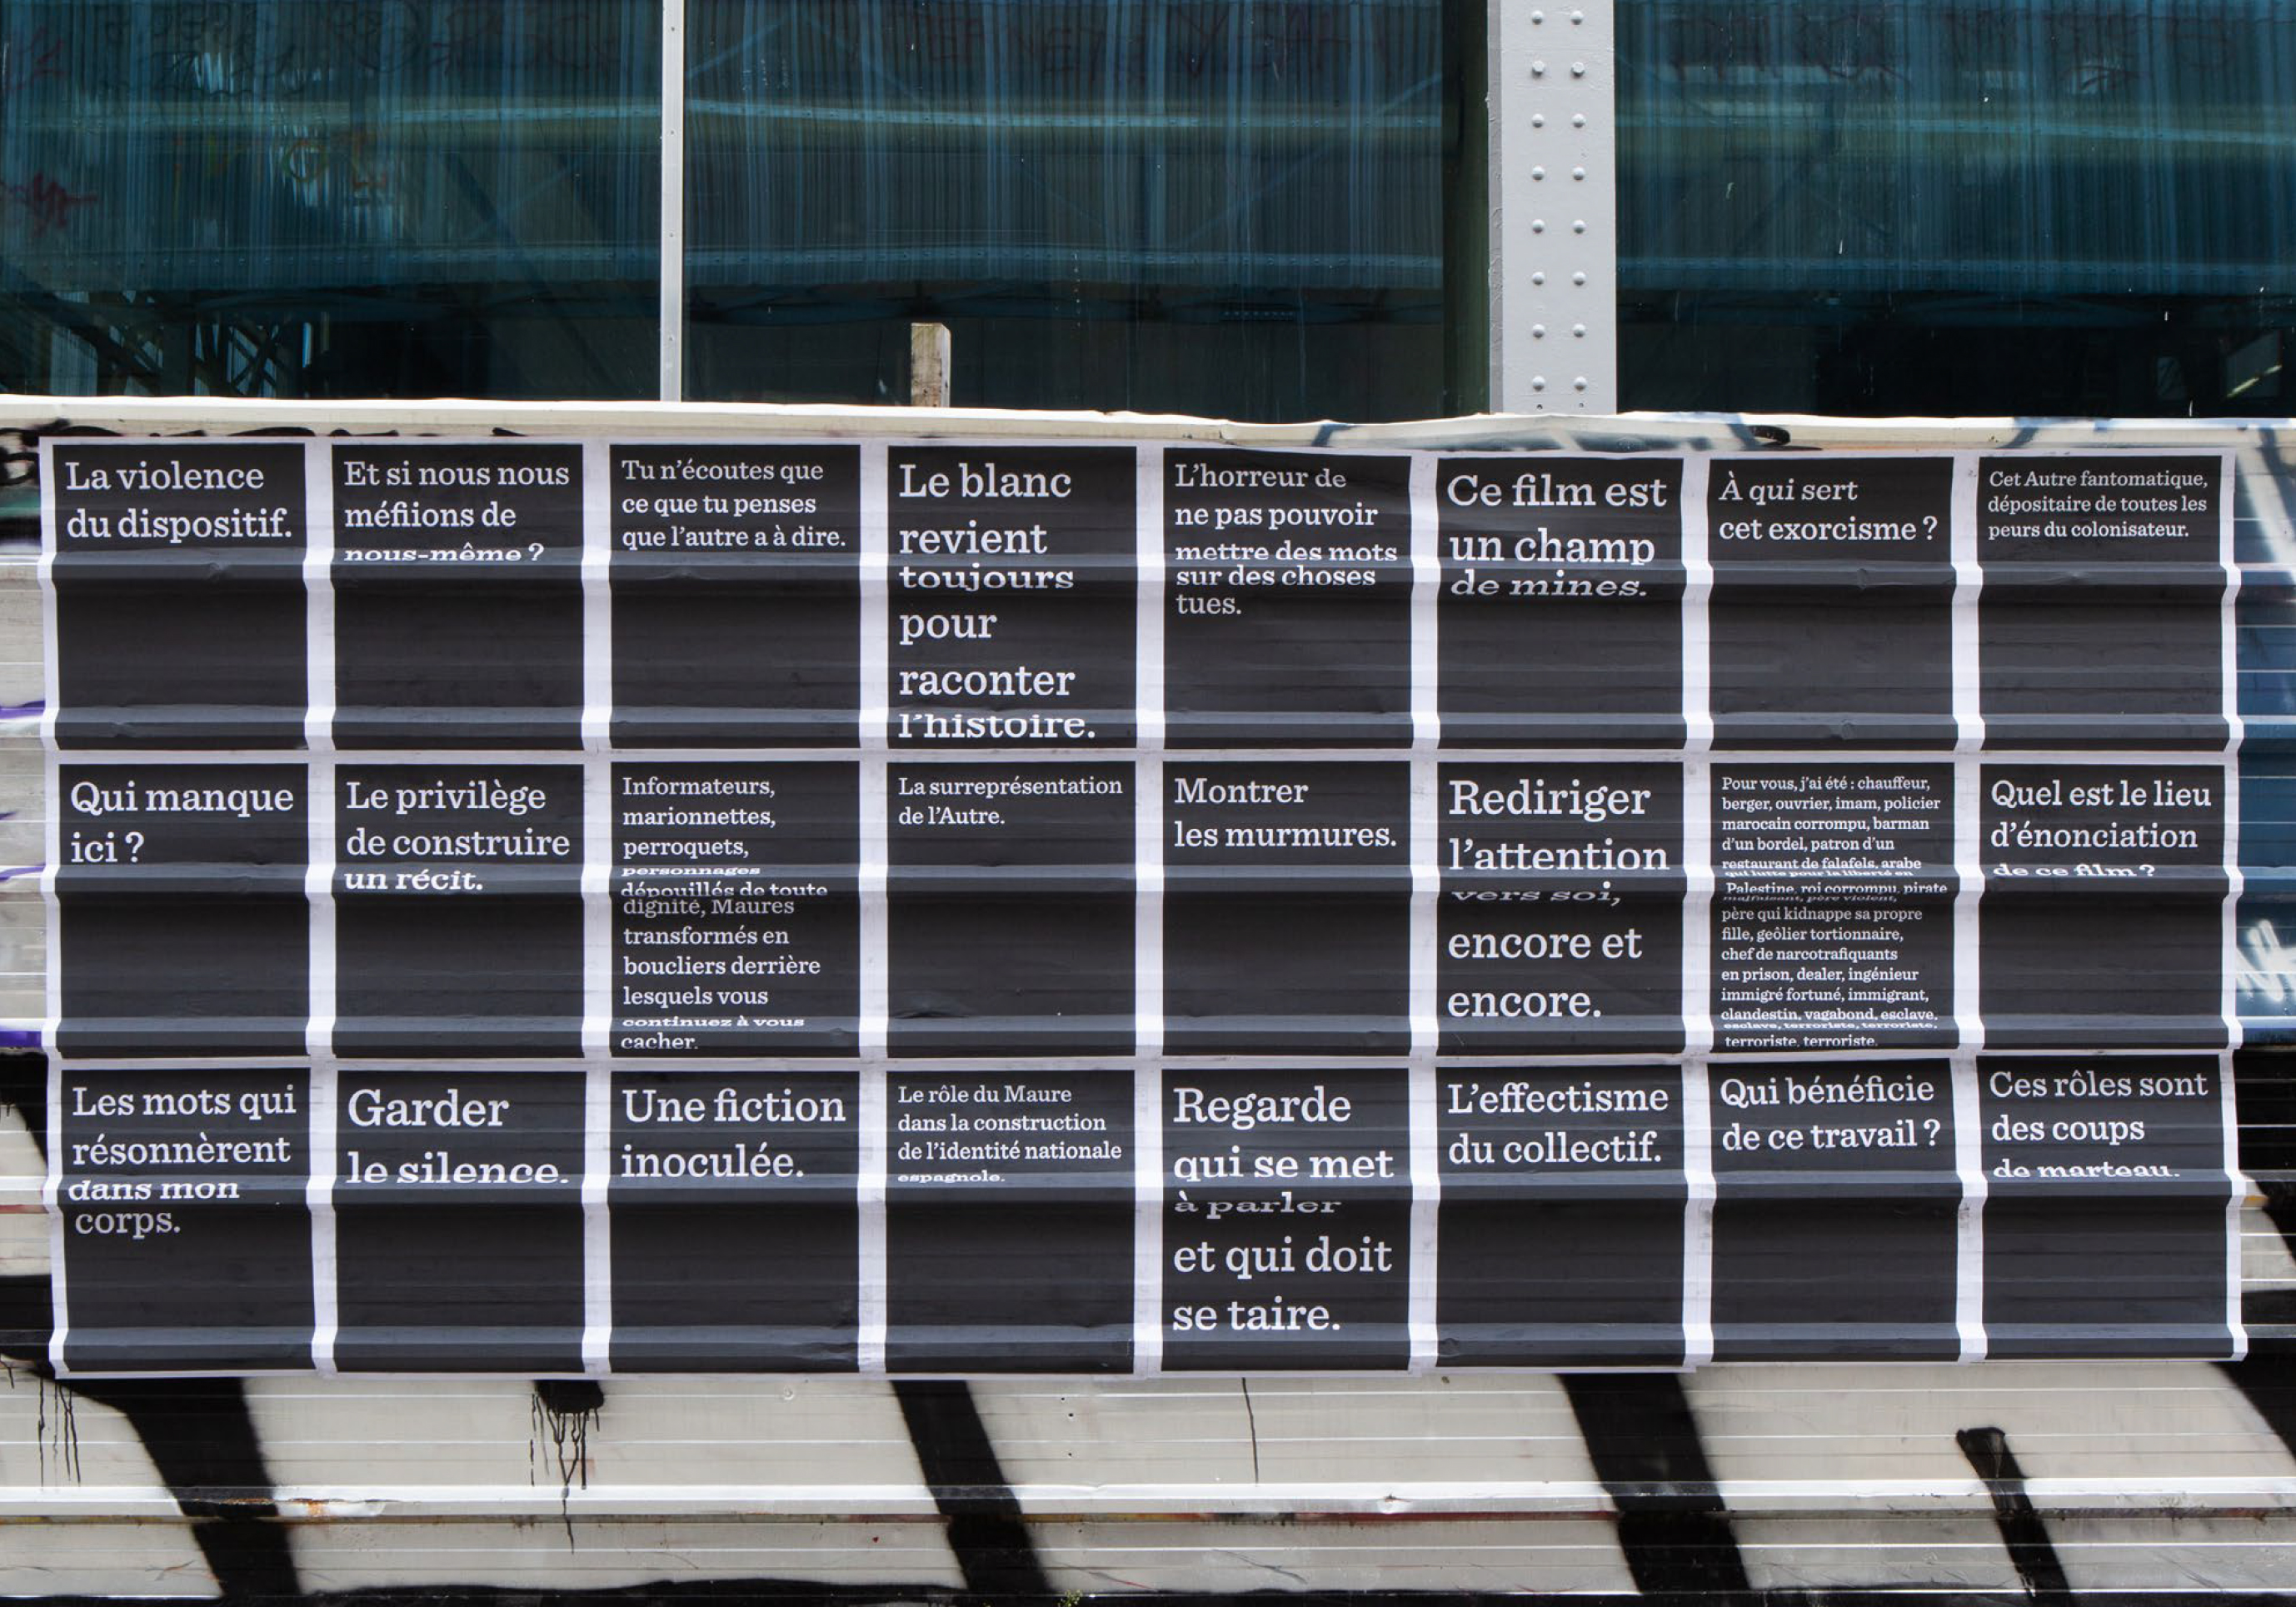 La violence
du dispositif.
Et si nous nous
méfiions de
nous-même ?
Tu n’écoutes que
ce que tu penses
que l’autre a à dire.
Le blanc
revient
toujours
pour
raconter
l’histoire.
L’horreur de
ne pas pouvoir
mettre des mots
sur des choses
tues.
Ce film est
un champ
de mines.
À qui sert
cet exorcisme ?
Cet Autre fantomatique,
dépositaire de toutes les
peurs du colonisateur.
Qui manque
ici ?
Le privilège
de construire
un récit.
Informateurs,
marionnettes,
perroquets,
personnages
dépouillés de toute
dignité, Maures
transformés en
boucliers derrière
lesquels vous
continuez à vous
cacher.
La surreprésentation
de l’Autre.
Montrer
les murmures.
Rediriger
l’attention
vers soi,
encore et
encore.
Pour vous, j’ai été : chauffeur,
berger, ouvrier, imam, policier
marocain corrompu, barman
d’un bordel, patron d’un
restaurant de falafels, arabe
qui lutte pour la liberté en
Palestine, roi corrompu, pirate
malfaisant, père violent,
père qui kidnappe sa propre
fille, geôlier tortionnaire,
chef de narcotrafiquants
en prison, dealer, ingénieur
immigré fortuné, immigrant,
clandestin, vagabond, esclave,
esclave, terroriste, terroriste,
terroriste, terroriste.
Quel est le lieu
d’énonciation
de ce film ?
Les mots qui
résonnèrent
dans mon
corps.
Garder
le silence.
Une fiction
inoculée.
Le rôle du Maure
dans la construction
de l’identité nationale
espagnole.
Regarde
qui se met
à parler
et qui doit
se taire.
L’effectisme
du collectif.
Qui bénéficie
de ce travail ?
Ces rôles sont
des coups
de marteau.